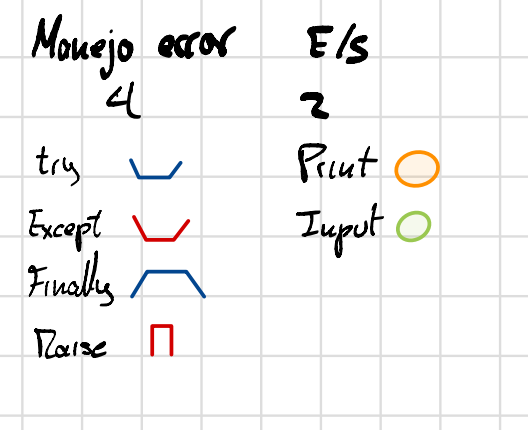 Manejo error
4
try
Except
Finally
Raise
E/s
2
Print
Input